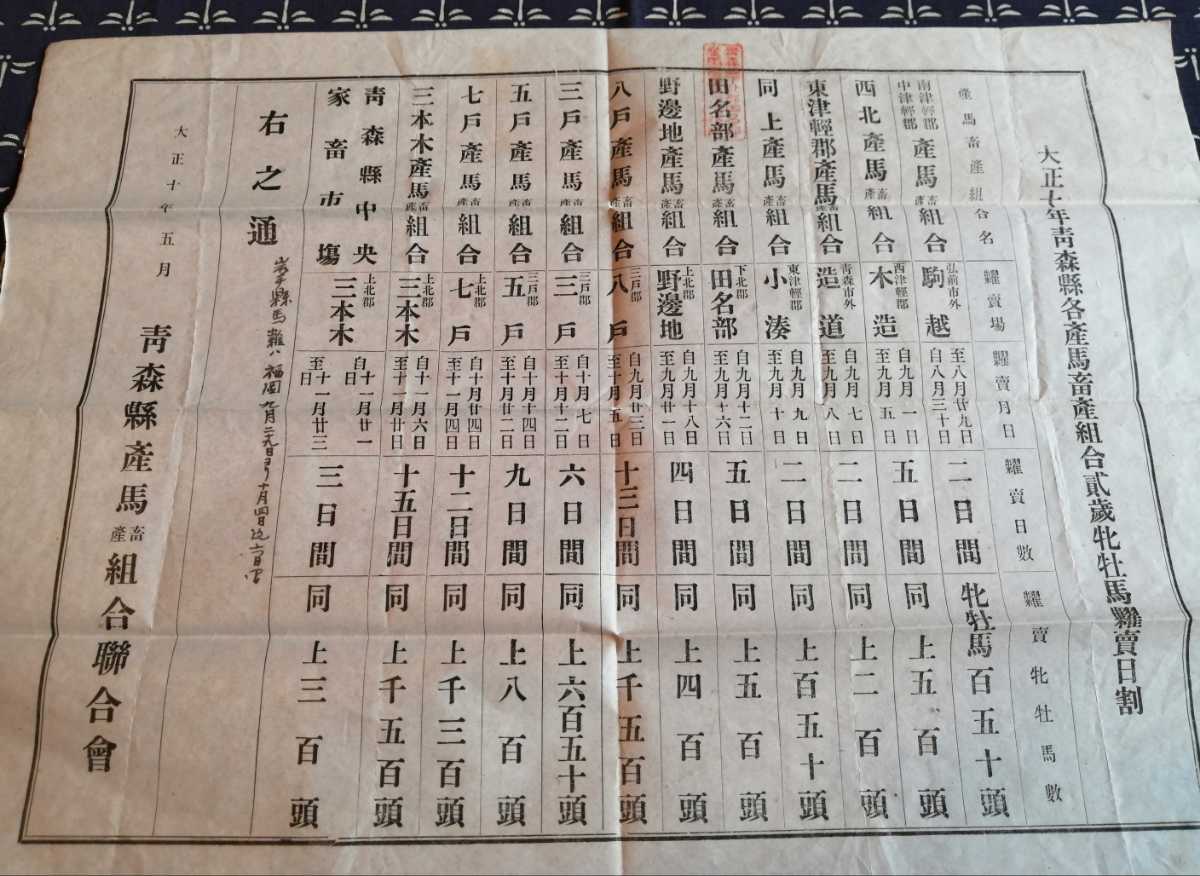 大正十年青森縣各產馬畜產組合貳歲牝牡馬糶賣日割
產馬畜產組合名 糶賣場 糶賣月日 糶賣日數 糶賣牝牡馬數
南津輕郡 中津輕郡 產馬畜產組合 弘前市外 駒越 至八月廿九日 自八月三十日 二日間 牝牡馬百五十頭
西北產馬畜產組合 西津輕郡 木造 自九月一日 至九月五日 五日間 同上五百頭
東津輕郡產馬畜產組合 青森市外 造道 自九月七日 至九月八日 二日間 同上二百頭
同上產馬畜產組合 東津輕郡 小湊 自九月九日 至九月十日 二日間 同上百五十頭
田名部產馬畜產組合 下北郡 田名部 自九月十二日 至九月十六日 五日間 同上五百頭
野邊地產馬畜產組合 上北郡 野邊地 自九月十八日 至九月廿一日 四日間 同上四百頭
八戶產馬畜產組合 三戶郡 八戶 自九月廿三日 至十月五日 十三日間 同上千五百頭
三戶產馬畜產組合 三戶郡 三戶 自十月七日 至十月十二日 六日間 同上六百五十頭
五戶產馬畜產組合 三戶郡 五戶 自十月十四日 至十月廿二日 九日間 同上八百頭
七戶產馬畜產組合 上北郡 七戶 自十月廿四日 至十一月四日 十二日間 同上千三百頭
三本木產馬畜產組合 上北郡 三本木 自十一月六日 至十一月廿日 十五日間 同上千五百頭
青森縣中央家畜市場 上北郡 三本木 自十一月廿一日 至十一月廿三日 三日間 同上三百頭
右之通
岩手縣馬糶ハ福岡九月二九日ヨリ十月四日迄六日間
大正十年五月
青森縣產馬畜產組合聯合會